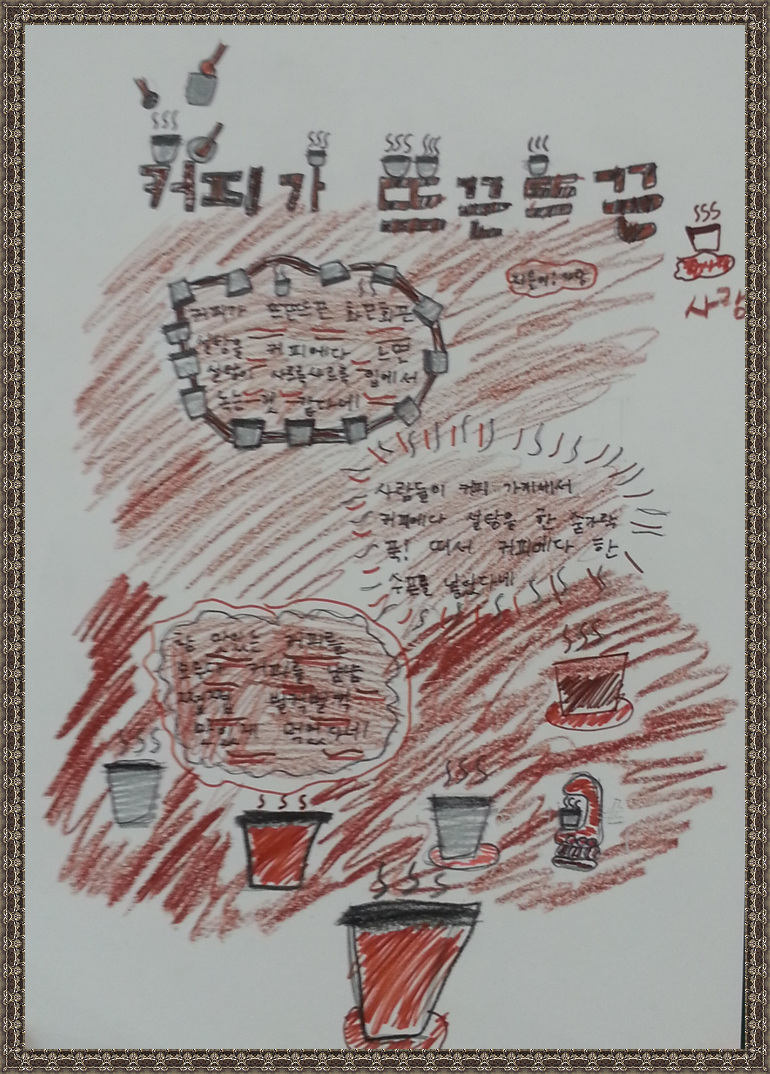 커피가 뜨끄뜨끈
지은이:
사랑
커피가 뜨끈뜨끈 화끈화끈
설탕을 커피에다 느면
설탕이 사르륵사르륵 입에서
녹는 것 같다네!
사람들이 커피 가게에서
커피에다 설탕을 한 숟가락
푹! 떠서 커피에다 한
수푼를 넣었다네
참 맛있는 커피를
모두가 커피를
벌컥벌컥
맛있게 먹었다네!